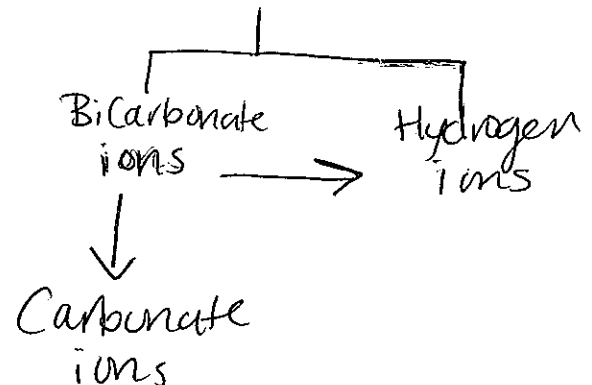 BiCarbonate
ions
Hydrogen
ions
Carbonate
ions